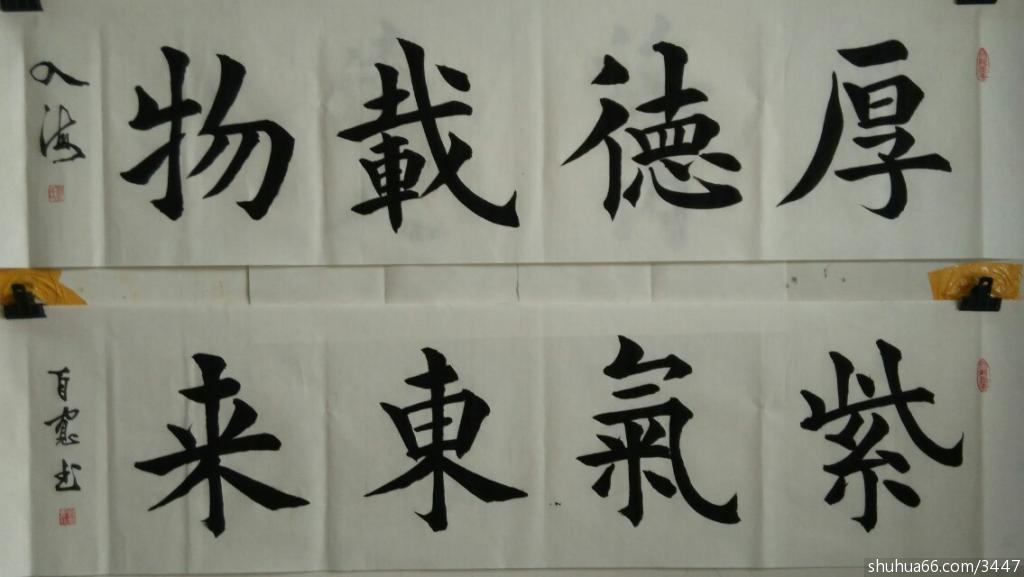 厚德載物
入海
紫氣東来
百忍书
shuhua66.com/3447